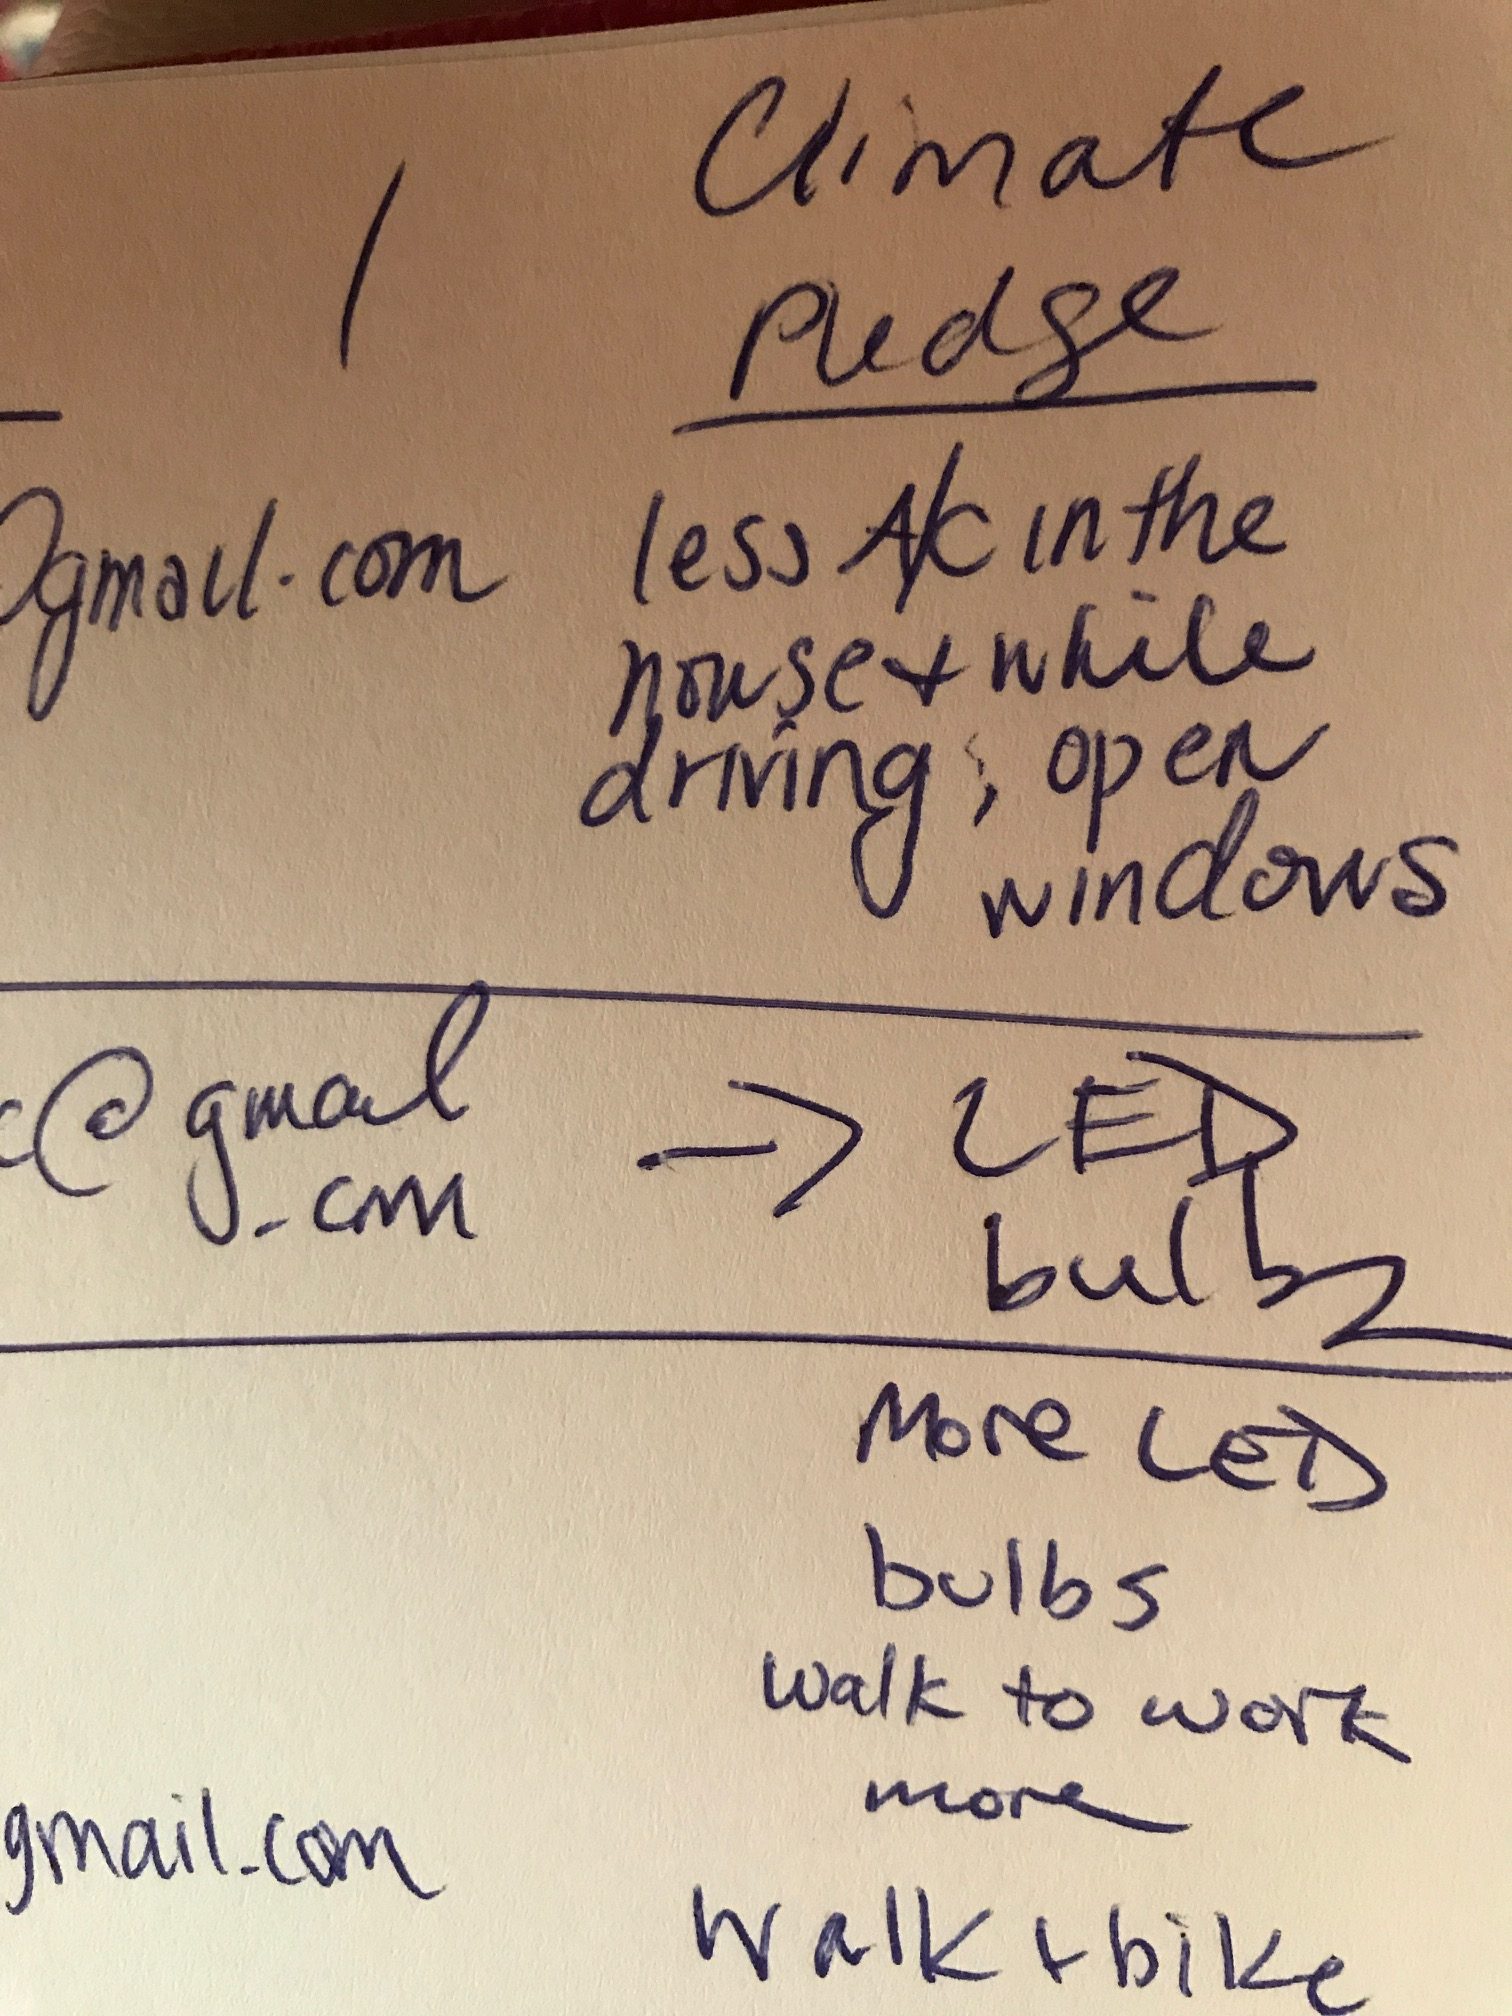 Climate
Pledge
@gmail.com less A/C in the
house + while
driving; open
windows
c@gmail → LED
.com bulbs
More LED
bulbs
walk to work
more
gmail.com
Walk + bike